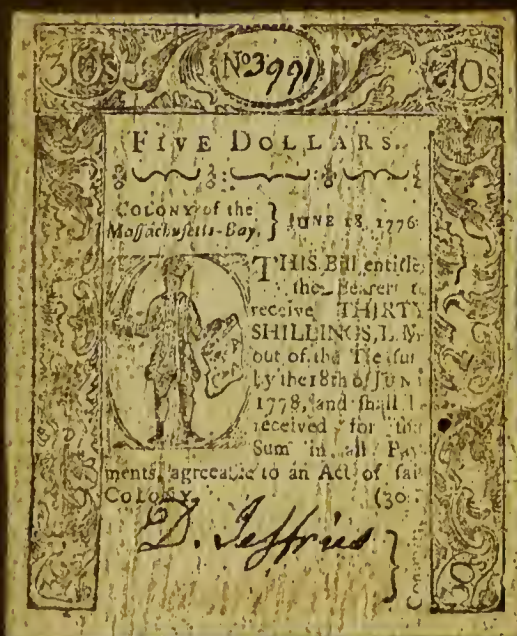 30s No 3991 30s
FIVE DOLLARS.
COLONY of the
Maſſachuſetts-Bay, } JUNE 18, 1776
THIS Bill entitles
the Bearer to
receive THIRTY
SHILLINGS, L. My
out of the Treſur
by the 18th of JUNE
1778, and ſhall
received for
Sum in all Pay
ments, agreeable to an Act of ſai
COLONY. (30
D. Jeffries
30